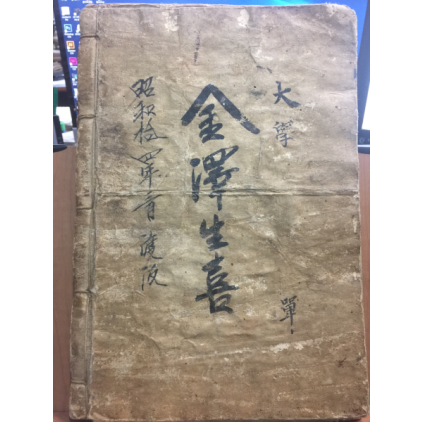 大學 單
金澤生喜
昭和拾四年